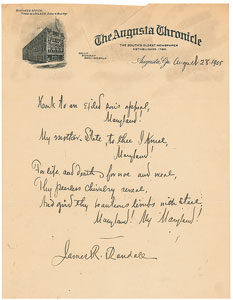 The Augusta Chronicle
THE SOUTH'S OLDEST NEWSPAPER
ESTABLISHED 1785
Augusta, Ga August 28 1905
Hark to an exiled son's appeal,
Maryland!
My mother-State to thee I kneel,
Maryland!
For life and death, for woe and weal,
Thy peerless chivalry reveal,
And gird thy beauteous limbs with steel,
Maryland! My Maryland!
James R. Randall